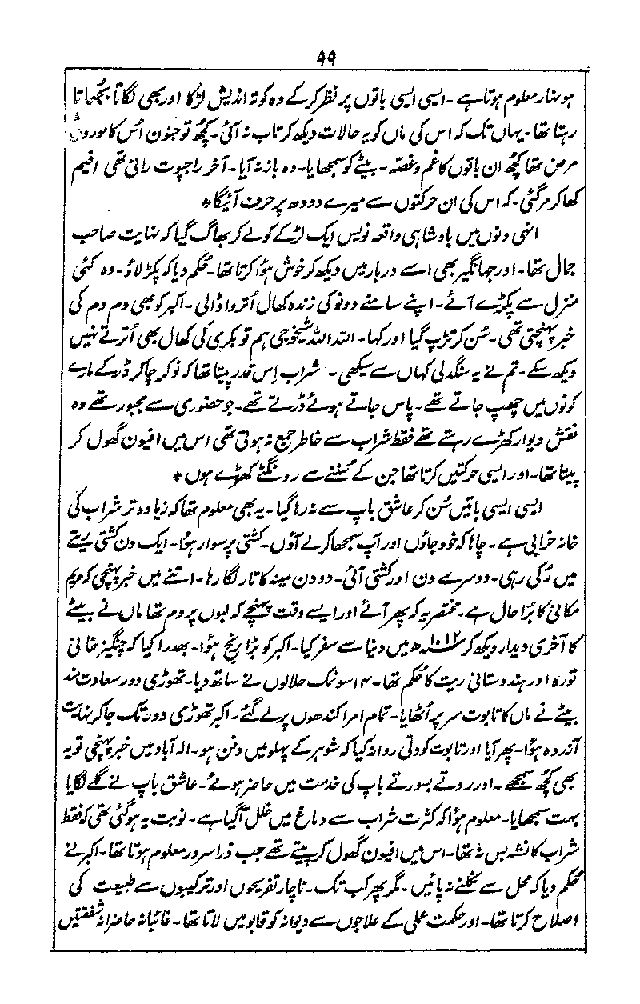 ۹۹
ہونہار معلوم ہوتا ہے ۔ ایسی ایسی باتوں پر نظر کر کے وہ کوتہ اندیش لڑکا اور بھی لگاتا بجھاتا
رہتا تھا ۔ یہاں تک کہ اس کی ماں کو یہ حالات دیکھ کر تاب نہ آئی ۔ کچھ تو جنون اُس کا موروثی
مرض تھا کچھ ان باتوں کا غم و غصہ ۔ بیٹے کو سمجھایا ۔ وہ باز نہ آیا ۔ آخر راجپوت رانی تھی افیم
کھا کر مر گئی ۔ کہ اس کی ان حرکتوں سے میرے دودھ پر حرف آئیگا *
انہی دنوں میں بادشاہی واقعہ نویس ایک لڑکے کو لے کر بھاگ گیا کہ نہایت صاحب
جمال تھا ۔ اور جہانگیر بھی اسے دربار میں دیکھ کر خوش ہوا کرتا تھا ۔ حکم دیا کہ پکڑ لاؤ ۔ وہ کئی
منزل سے پکڑے آئے ۔ اپنے سامنے دونو کی زندہ کھال اُتروا ڈالی ۔ اکبر کو بھی دم دم کی
خبر پہنچتی تھی ۔ سُن کر تڑپ گیا اور کہا ۔ اللہ اللہ شیخوجی ہم تو بکری کی کھال بھی اُترتے نہیں
دیکھ سکے ۔ تم نے یہ سنگدلی کہاں سے سیکھی ۔ شراب اِس قدر پیتا تھا کہ نوکر چاکر ڈر کے مارے
کونوں میں چھپ جاتے تھے ۔ پاس جاتے ہوئے ڈرتے تھے ۔ جو حضوری سے مجبور تھے وہ
نقش دیوار کھڑے رہتے تھے فقط شراب سے خاطر جمع نہ ہوتی تھی اس میں افیون گھول کر
پیتا تھا ۔ اور ایسی حرکتیں کرتا تھا جن کے سننے سے رونگٹے کھڑے ہوں *
ایسی ایسی باتیں سُن کر عاشق باپ سے نہ رہا گیا ۔ یہ بھی معلوم تھا کہ زیادہ تر شراب کی
خانہ خرابی ہے ۔ چاہا کہ خود جاؤں اور آپ سمجھا کر لے آؤں ۔ کشتی پر سوار ہوا ۔ ایک دن کشتی ریتے
میں رُکی رہی ۔ دوسرے دن اور کشتی آئی ۔ دو دن مینہ کا تار لگا رہا ۔ اتنے میں خبر پہنچی کہ مریم
مکانی کا بُرا حال ہے ۔ مختصر یہ کہ پھر آئے اور ایسے وقت پہنچے کہ لبوں پر دم تھا ماں نے بیٹے
کا آخری دیدار دیکھ کر ۱۰۱۲ھ میں دنیا سے سفر کیا ۔ اکبر کو بڑا رنج ہوا ۔ بھدرا کیا کہ چنگیز خانی
تورہ اور ہندوستانی ریت کا حکم تھا ۔ ۱۴ سو نمک حلالوں نے ساتھ دیا ۔ تھوڑی دور سعادت مند
بیٹے نے ماں کا تابوت سر پر اُٹھایا ۔ تمام امرا کندھوں پر لے گئے ۔ اکبر تھوڑی دور تک جا کر نہایت
آزردہ ہوا ۔ پھر آیا اور تابوت کو دلی روانہ کیا کہ شوہر کے پہلو میں دفن ہو ۔ الہ آباد میں خبر پہنچی تو یہ
بھی کچھ سمجھے ۔ اور روتے بسورتے باپ کی خدمت میں حاضر ہوئے ۔ عاشق باپ نے گلے لگایا
بہت سمجھایا ۔ معلوم ہوا کہ کثرت شراب سے دماغ میں خلل آ گیا ہے ۔ نوبت یہ ہو گئی تھی کہ فقط
شراب کا نشہ بس نہ تھا ۔ اس میں افیون گھول کر پیتے تھے جب ذرا سرور معلوم ہوتا تھا ۔ اکبر نے
حکم دیا کہ محل سے نکلنے نہ پائیں ۔ مگر پھر کب تک ۔ ناچار تفریحوں اور ترکیبوں سے طبیعت کی
اصلاح کرتا تھا ۔ اور حکمت عملی کے علاجوں سے دیوانہ کو قابو میں لاتا تھا ۔ غائبانہ حاضرانہ شفقتیں